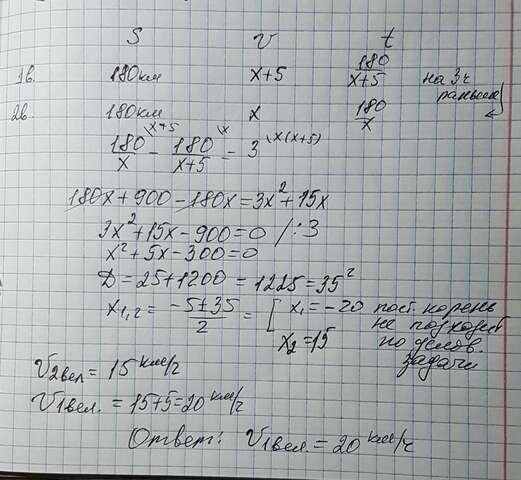 S V t
1в. 180км x+5 180/(x+5) на 3ч раньше
2в. 180км x 180/x
180/x \x+5 - 180/(x+5) \x = 3 \x(x+5)
180x + 900 - 180x = 3x² + 15x
3x² + 15x - 900 = 0 /:3
x² + 5x - 300 = 0
D = 25 + 1200 = 1225 = 35²
x₁,₂ = (-5 ± 35)/2 = [ x₁ = -20 пост. корень не подходит по услов. задачи
x₂ = 15
V2вел = 15 км/ч
V1вел. = 15+5 = 20 км/ч
Ответ: V1вел. = 20 км/ч